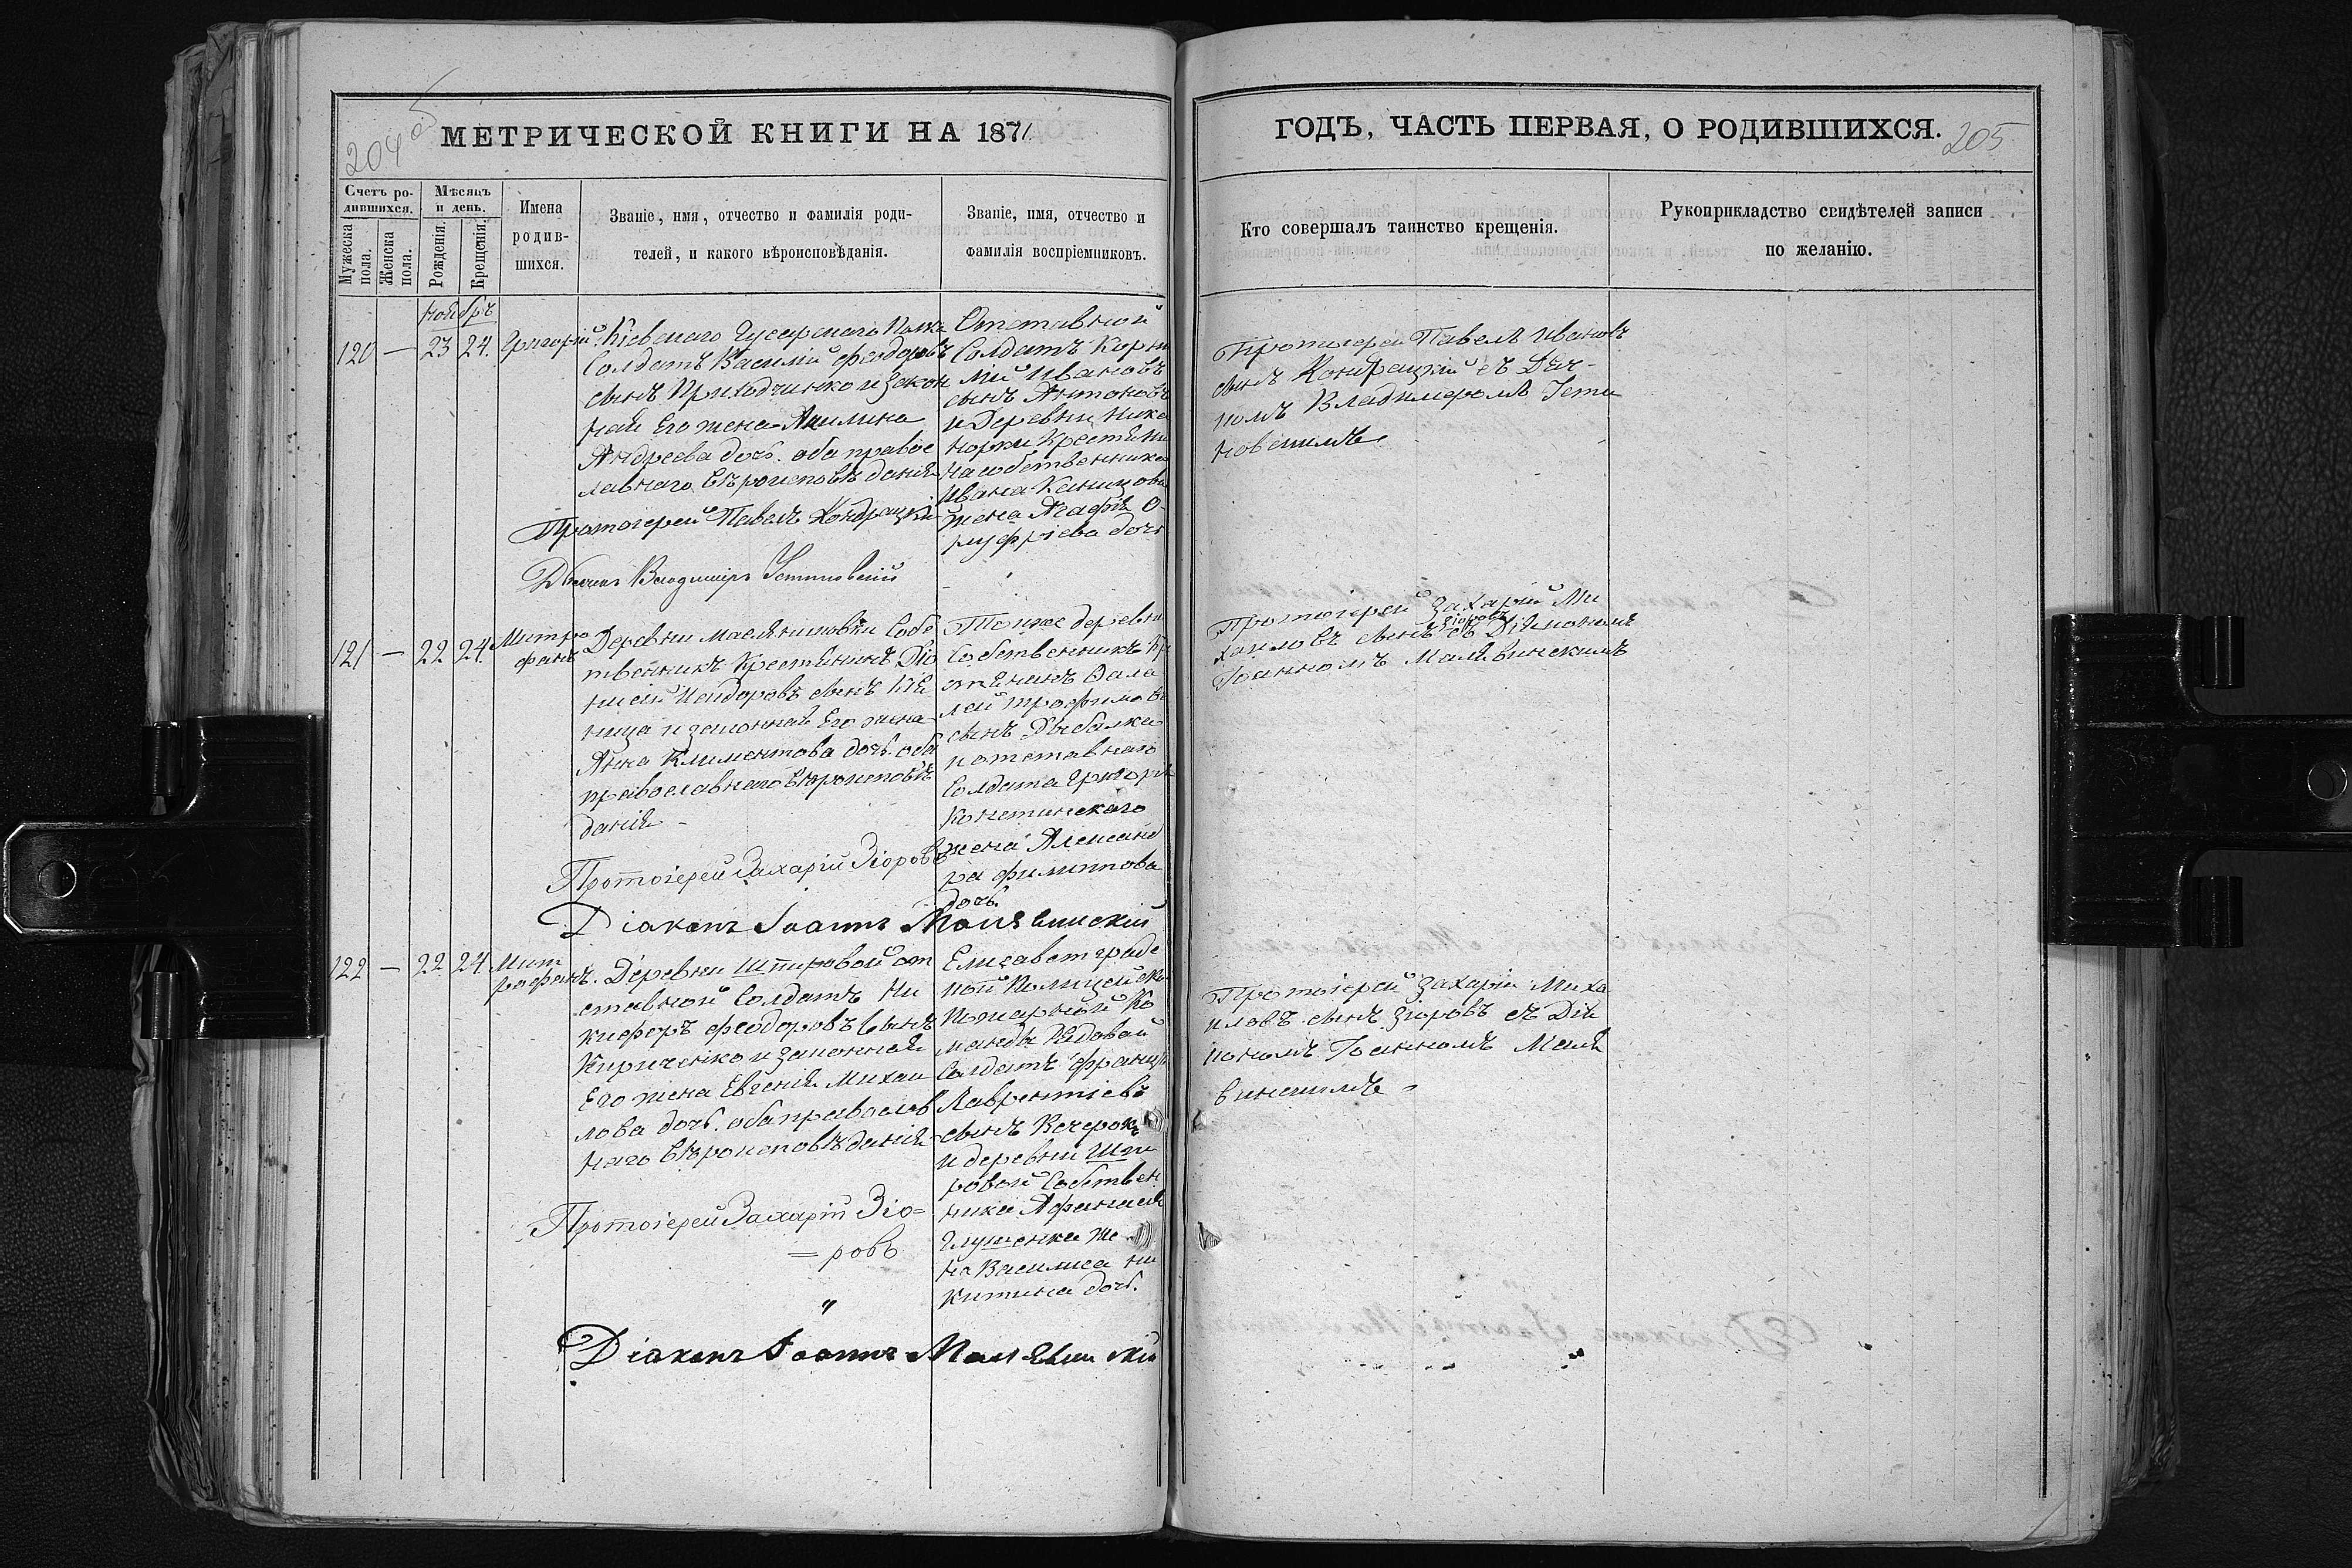 204 об
МЕТРИЧЕСКОЙ КНИГИ НА 1871
Счетъ ро-
дившихся.
Мѣсяцъ
и день.
Мужеска
пола.
Женска
пола.
Рожденія.
Крещенія.
Имена
родив-
шихся.
Званіе, имя, отчество и фамилія роди-
телей, и какого вѣроисповѣданія.
Званіе, имя, отчество и
фамилія воспріемниковъ.
Ноябрь
120 — 23 24. Григорій
Кіевскаго Гусарскаго Полка
Солдатъ Василій Феодоровъ
сынъ Приходченко и закон
ная Его жена Акилина
Андреева дочь. оба правос
лавнаго Вѣроисповѣданія
Протоіерей Павелъ Кондрацкій
Діаконъ Владиміръ Устиновскій
Отставной
Солдатъ Корни
лій Ивановъ
сынъ Антоновъ
и Деревни Нико
норки Крестьяни
на собственника
Ивана
жена Агафія О-
нуфріева дочь
121 — 22 24. Митро
фанъ
Деревни Масляниковки Собс
твенникъ Крестьянинъ Діо
нисій Исидоровъ сынъ
ница и законная Его жена
Анна Климентова дочь. оба
православнаго Вѣроисповѣ
данія
Протоіерей Захарій Зіоровъ
Діаконъ Іоаннъ Малявинскій
Тоиже деревни
Собственникъ Кр
стьянинъ
лей Трофимовъ
сынъ Рыбалка
и отставнаго
Солдата Григорія
жена Александ
ра Филиппова
дочь.
122 — 22 24. Мит
рофанъ.
Деревни Шпировой от
ставной Солдатъ Ни
кифоръ Феодоровъ сынъ
Кириченко и законная
Его жена Евгенія Михаи
лова дочь. оба православ
наго Вѣроисповѣданія
Протоіерей Захарій Зіо=
=ровъ
Діаконъ Іоаннъ Малявинскій
Елисаветградс
кой Полицейско
Пожарной Ко
манды Рядовой
Солдатъ Францъ
Лаврентіевъ
сынъ
и деревни Шпи
ровой Собствен
ника Афанасія
Глушенка же
на Василиса Ни
китина дочь.
ГОДЪ, ЧАСТЬ ПЕРВАЯ, О РОДИВШИХСЯ.
205
Кто совершалъ таинство крещенія.
Рукоприкладство свидѣтелей записи
по желанію.
Протоіерей Павелъ Ивановъ
сынъ Кондрацкій съ Діа-
кономъ Владиміромъ Усти
новскимъ
Протоіерей Захарій Ми
хаиловъ сынъ Зіоровъ съ Діакономъ
Іоанномъ Малявинскимъ
Протоіерей Захарій Миха
иловъ сынъ Зіоровъ съ Діа
кономъ Іоанномъ Маля
винскимъ